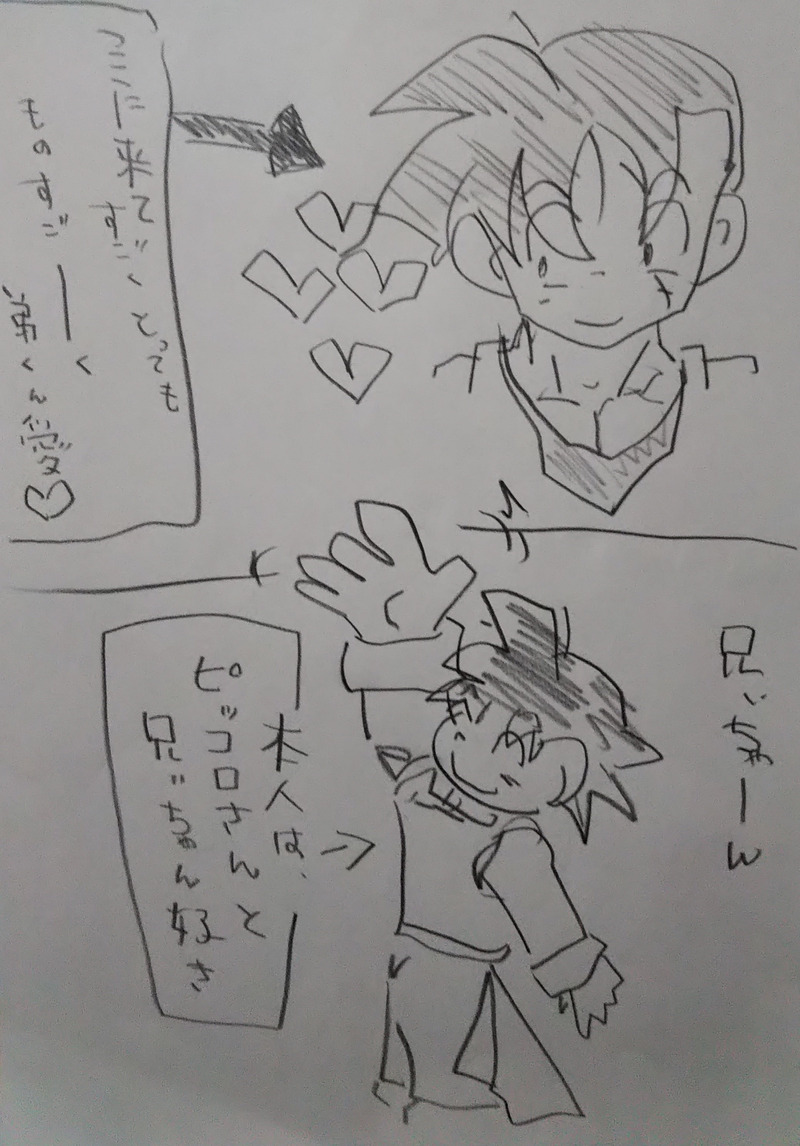 ここに来て
すごくとっても
ものすごーく
弟くんに愛
兄いちゃーん
本人は、
ピッコロさんと
兄いちゃん好き